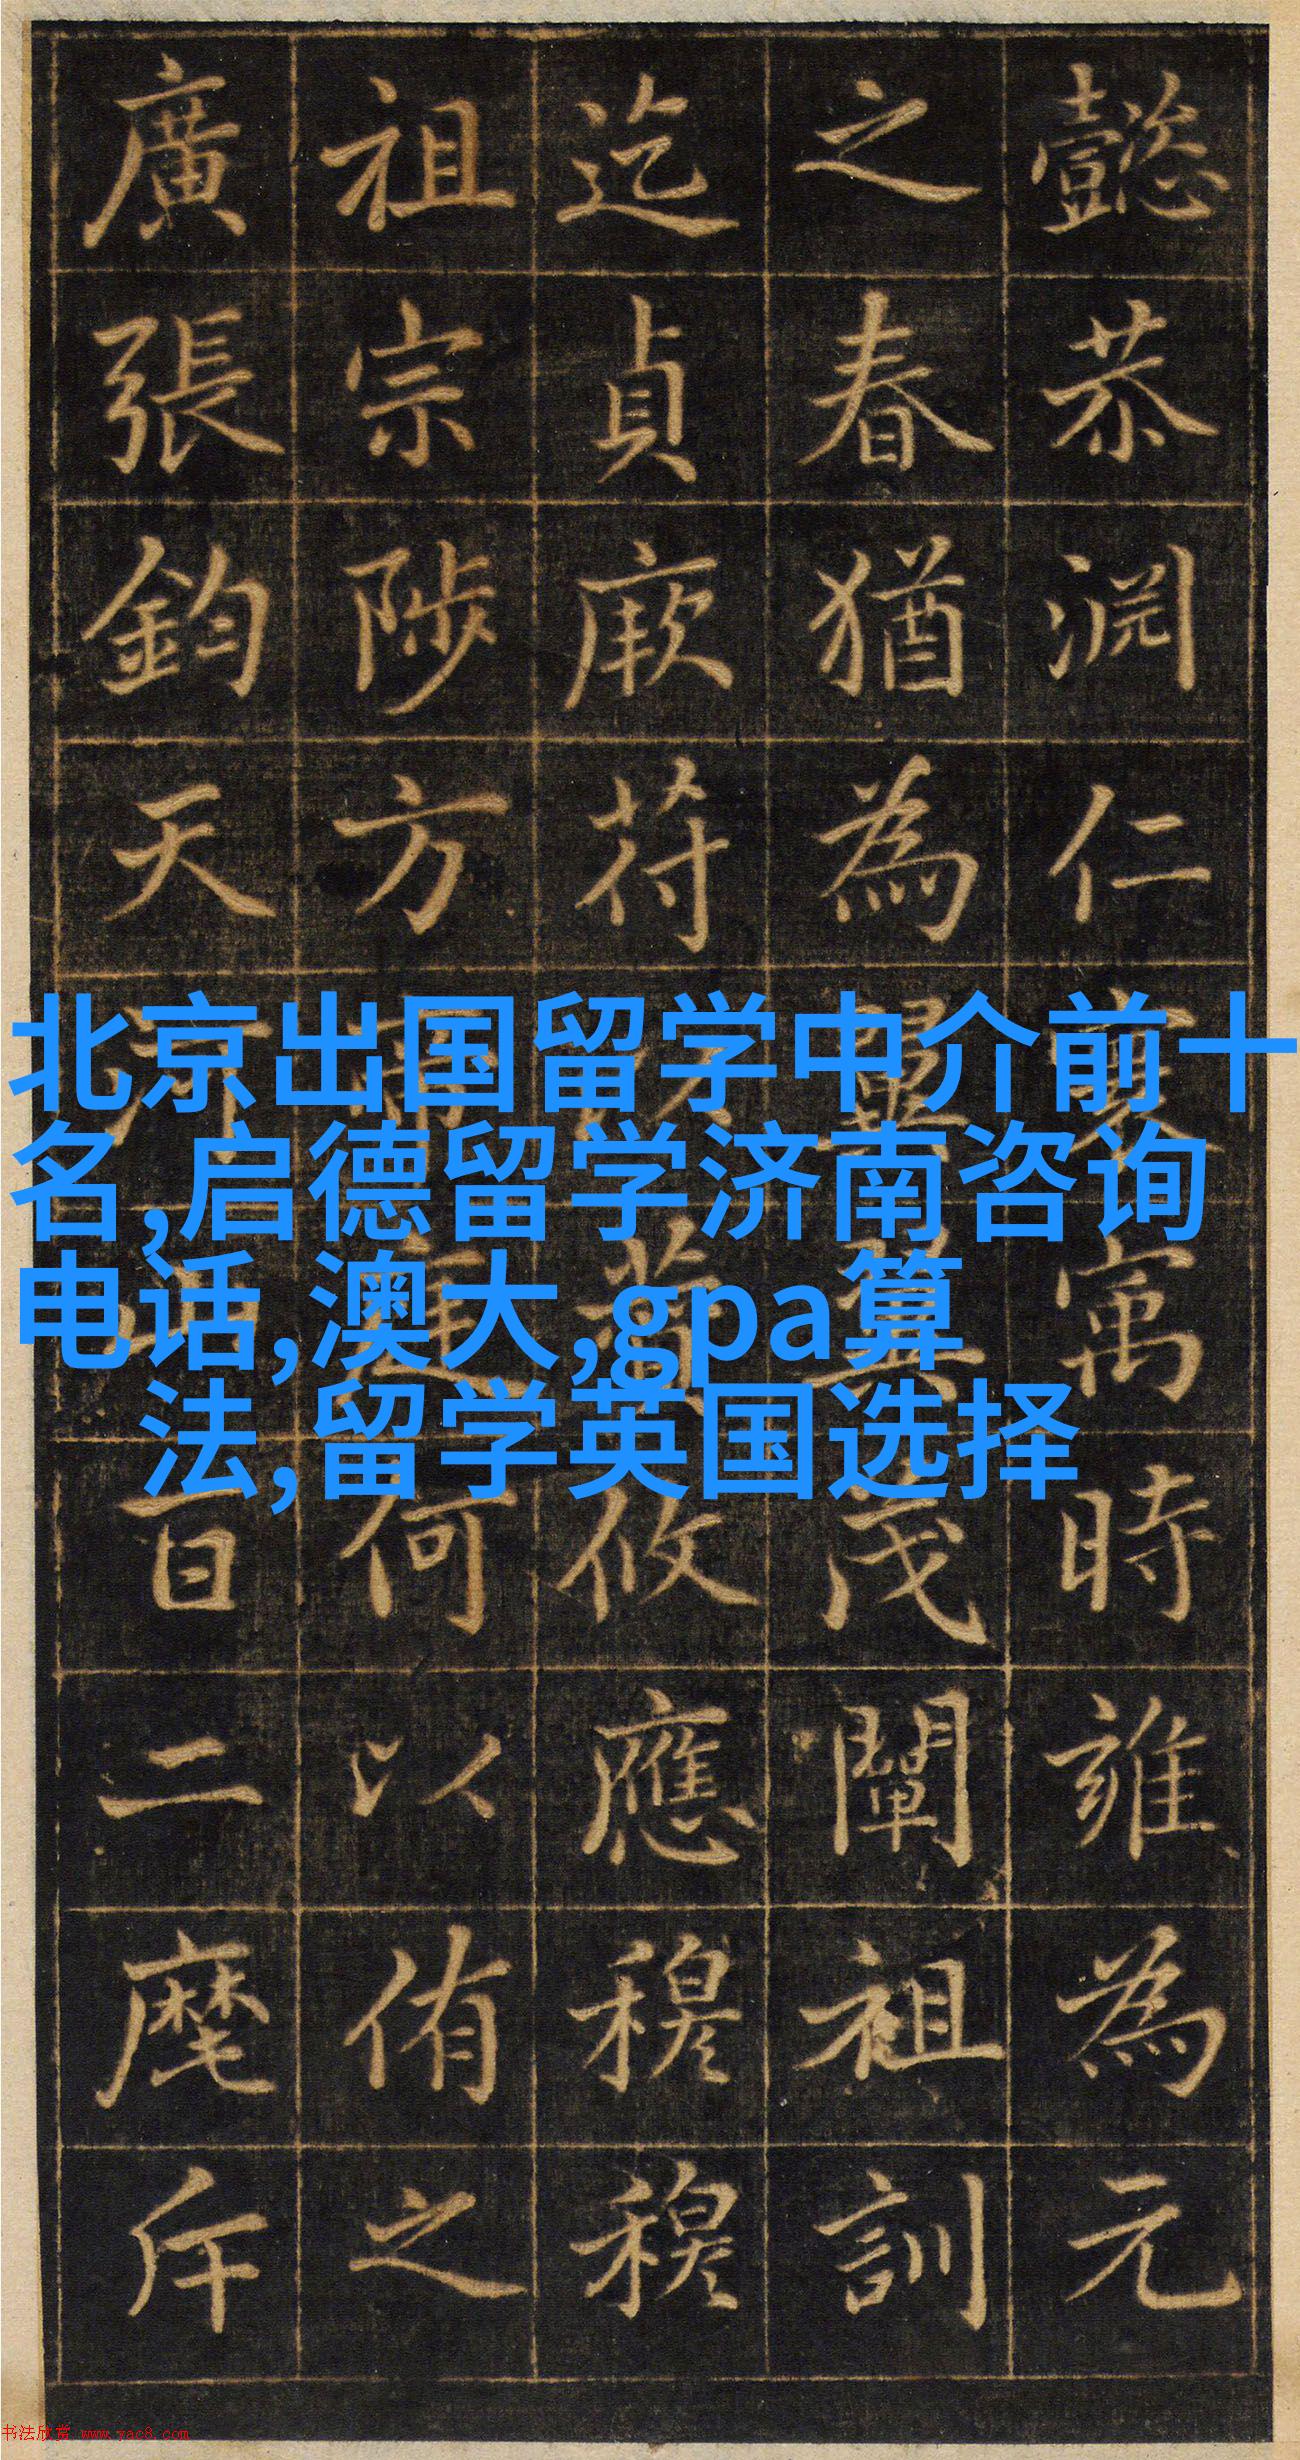 懿恭淵仁寓時雍為元
之春猶為茂闡祖訓
迄貞厥苻攸應穆穆
祖宗陟方何以侑之
廣張鈞天百二麾斥
北京出国留学中介前十
名,启德留学济南咨询
电话,澳大,gpa算
法,留学英国选择
书法欣赏 www.yac8.com